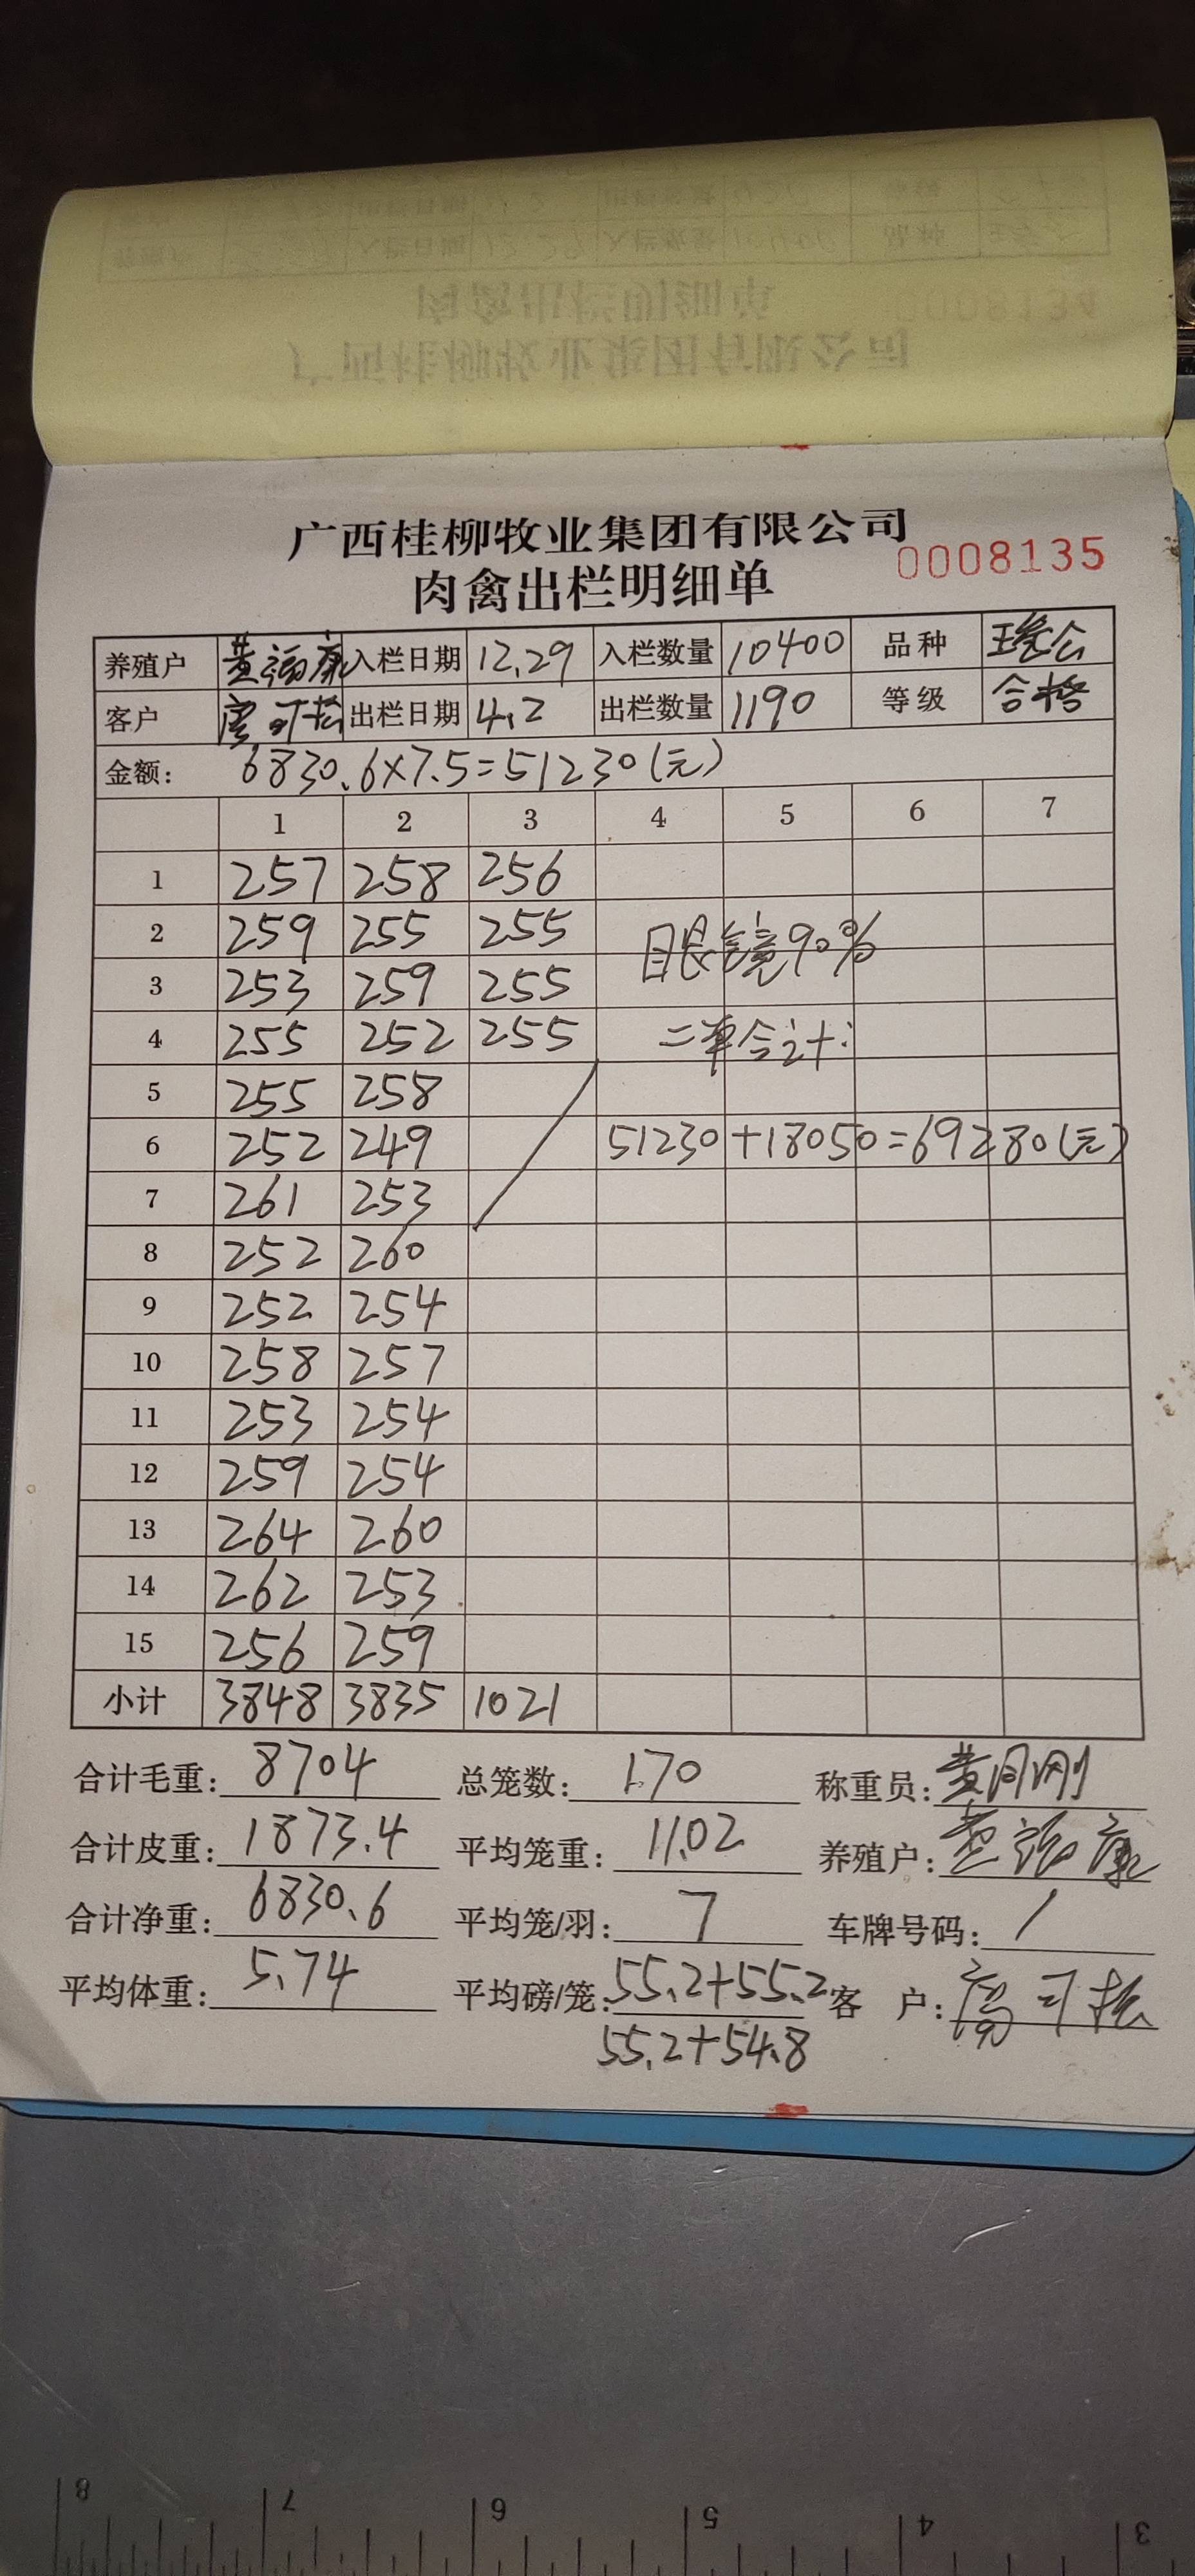 广西桂柳牧业集团有限公司
肉禽出栏明细单 0008135
养殖户 黄福康 入栏日期 12.29 入栏数量 10400 品种 瑤公
客户 出栏日期 4.2 出栏数量 1190 等级 合格
金额: 6830.6×7.5=51230(元)
1 2 3 4 5 6 7
1 257 258 256
2 259 255 255 眼镜90%
3 253 259 255
4 255 252 255 二单合计:
5 255 258
6 252 249 51230+18050=69280(元)
7 261 253
8 252 260
9 252 254
10 258 257
11 253 254
12 259 254
13 264 260
14 262 253
15 256 259
小计 3848 3835 1021
合计毛重: 8704 总笼数: 170 称重员: 黄月刚
合计皮重: 1873.4 平均笼重: 11.02 养殖户: 黄福康
合计净重: 6830.6 平均笼/羽: 7 车牌号码: /
平均体重: 5.74 平均磅/笼: 55.2+55.2 客 户:
55.2+54.8
8 7 6 5 4 3